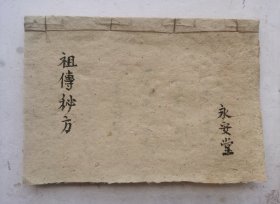 祖傳秘方
永安堂